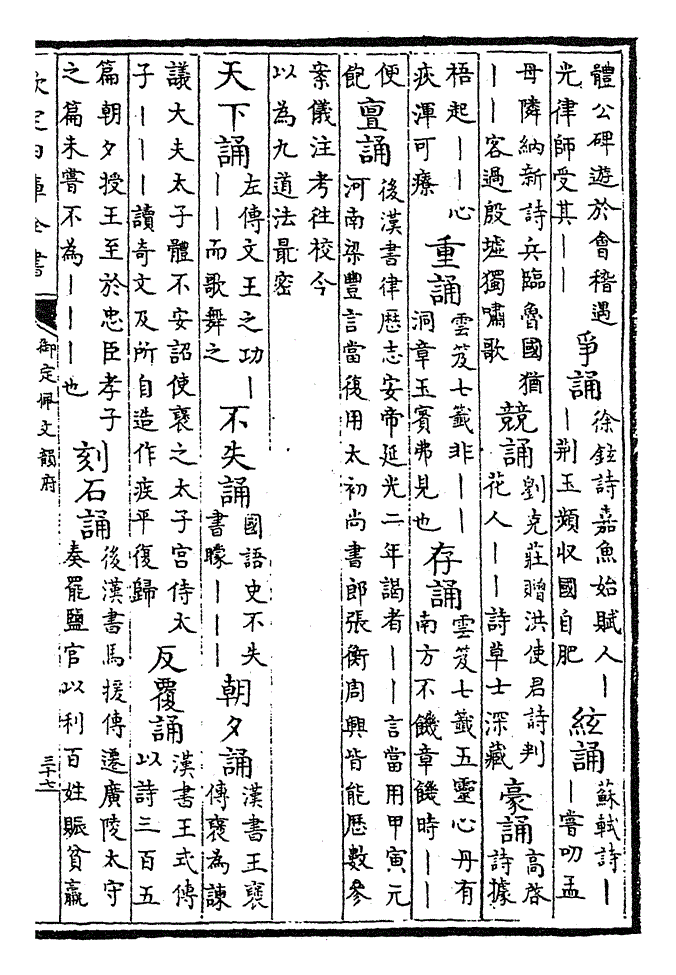 體公碑遊於會稽遇
光律師受其——
爭誦
徐鉉詩嘉魚始賦人—
—荆玉頻収國自肥
絃誦
蘇軾詩—
—嘗叨孟
母隣納新詩兵臨魯國猶
——客過殷墟獨嘯歌
競誦
劉克莊贈洪使君詩判
花人——詩草士深藏
豪誦
高啓
詩據
梧起——心
疾渾可療
重誦
雲笈七籤非——
洞章玉賓弗見也
存誦
雲笈七籤五靈心丹有
南方不饑章饑時——
便
飽
亶誦
後漢書律歴志安帝延光二年謁者——言當用甲寅元
河南梁豐言當復用太初尚書郎張衡周興皆能歴數參
案儀注考徃校今
以為九道法最密
天下誦
左傳文王之功—
——而歌舞之
不失誦
國語史不失
書矇———
朝夕誦
漢書王襃
傳襃為諫
議大夫太子體不安詔使襃之太子宮侍太
子———讀奇文及所自造作疾平復歸
反覆誦
漢書王式傳
以詩三百五
篇朝夕授王至於忠臣孝子
之篇未嘗不為———也
刻石誦
後漢書馬援傳遷廣陵太守
奏罷鹽官以利百姓賑貧羸
欽定四庫全書
御定佩文韻府
三十七